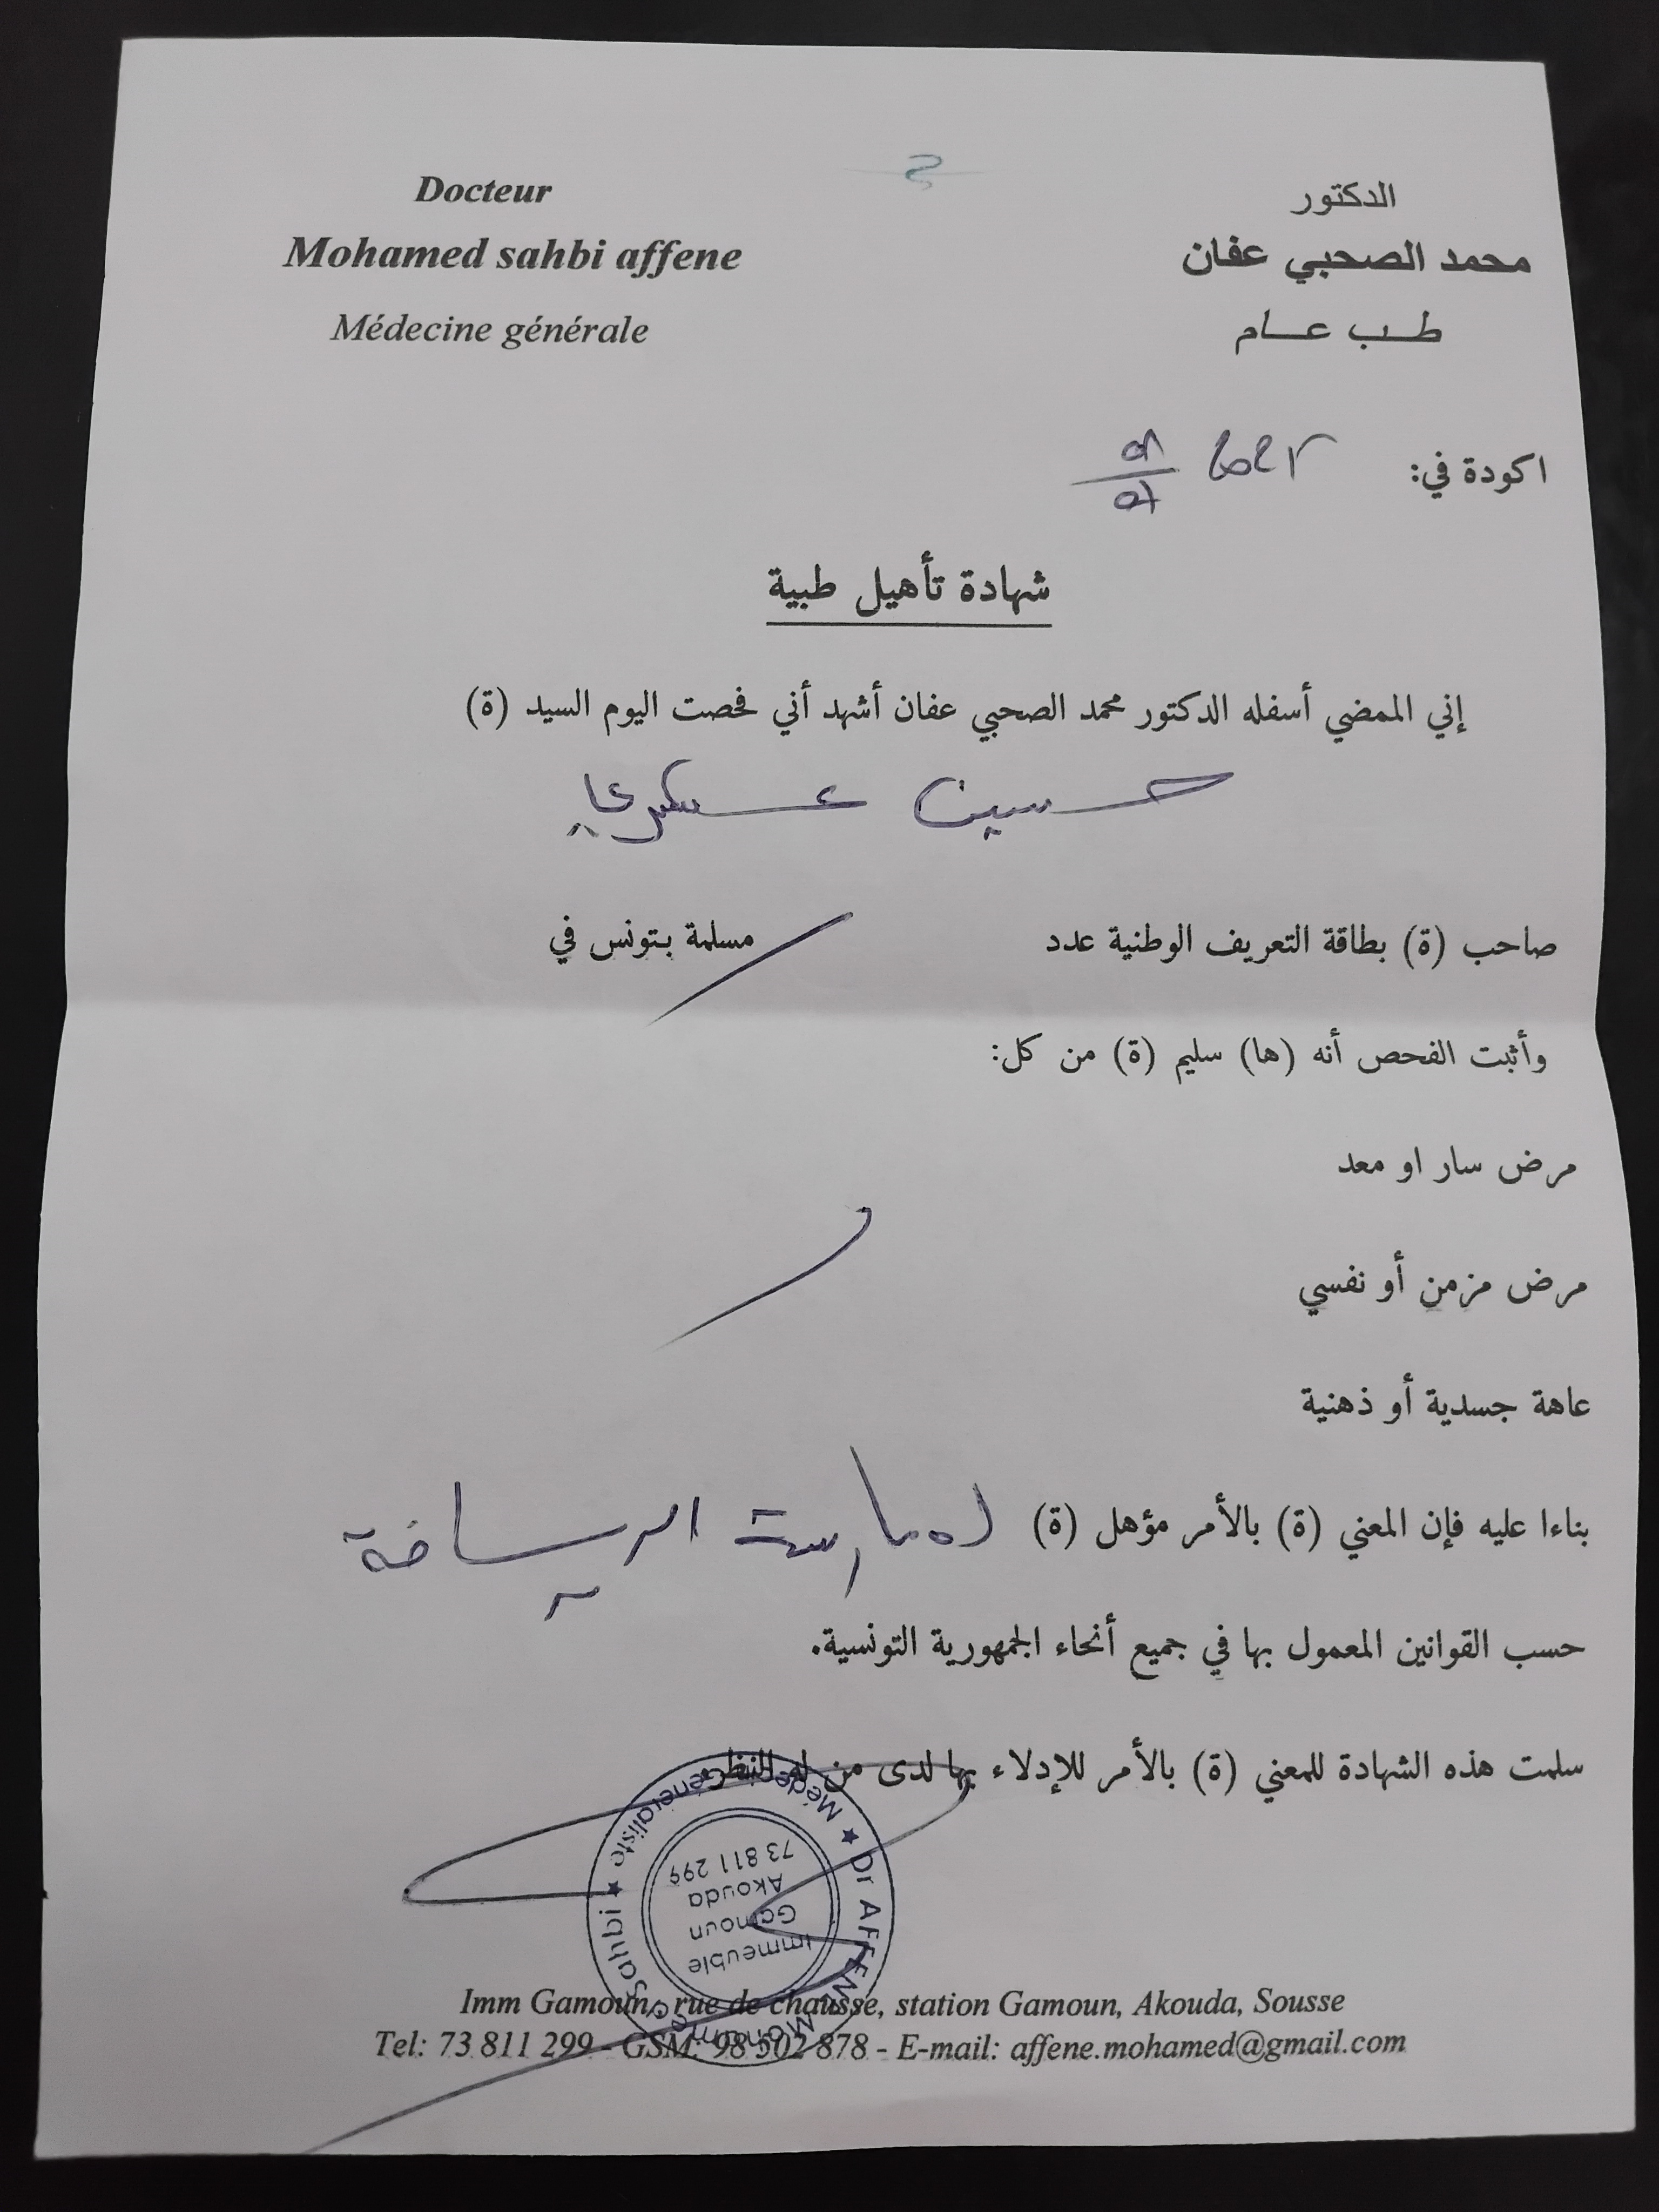 Docteur
Mohamed sahbi affene
Médecine générale
الدكتور
محمد الصحبي عفان
طب عام
اكودة في:
شهادة تأهيل طبية
إني الممضي أسفله الدكتور محمد الصحبي عفان أشهد أني فحصت اليوم السيد (ة)
حسين
صاحب (ة) بطاقة التعريف الوطنية عدد مسلمة بتونس في
وأثبت الفحص أنه (ها) سليم (ة) من كل:
مرض سار او معد
مرض مزمن أو نفسي
عاهة جسدية أو ذهنية
بناءا عليه فإن المعني (ة) بالأمر مؤهل (ة) لممارست الرياضة
حسب القوانين المعمول بها في جميع أنحاء الجمهورية التونسية.
سلمت هذه الشهادة للمعني (ة) بالأمر للإدلاء بها لدى من له النظر.
Dr AFFENE Mohamed Sahbi ★ Médecin Généraliste ★
Immeuble
Gamoun
Akouda
73 811 299
Imm Gamoun, rue de chausse, station Gamoun, Akouda, Sousse
Tel: 73 811 299 - GSM: 98 502 878 - E-mail: affene.mohamed@gmail.com